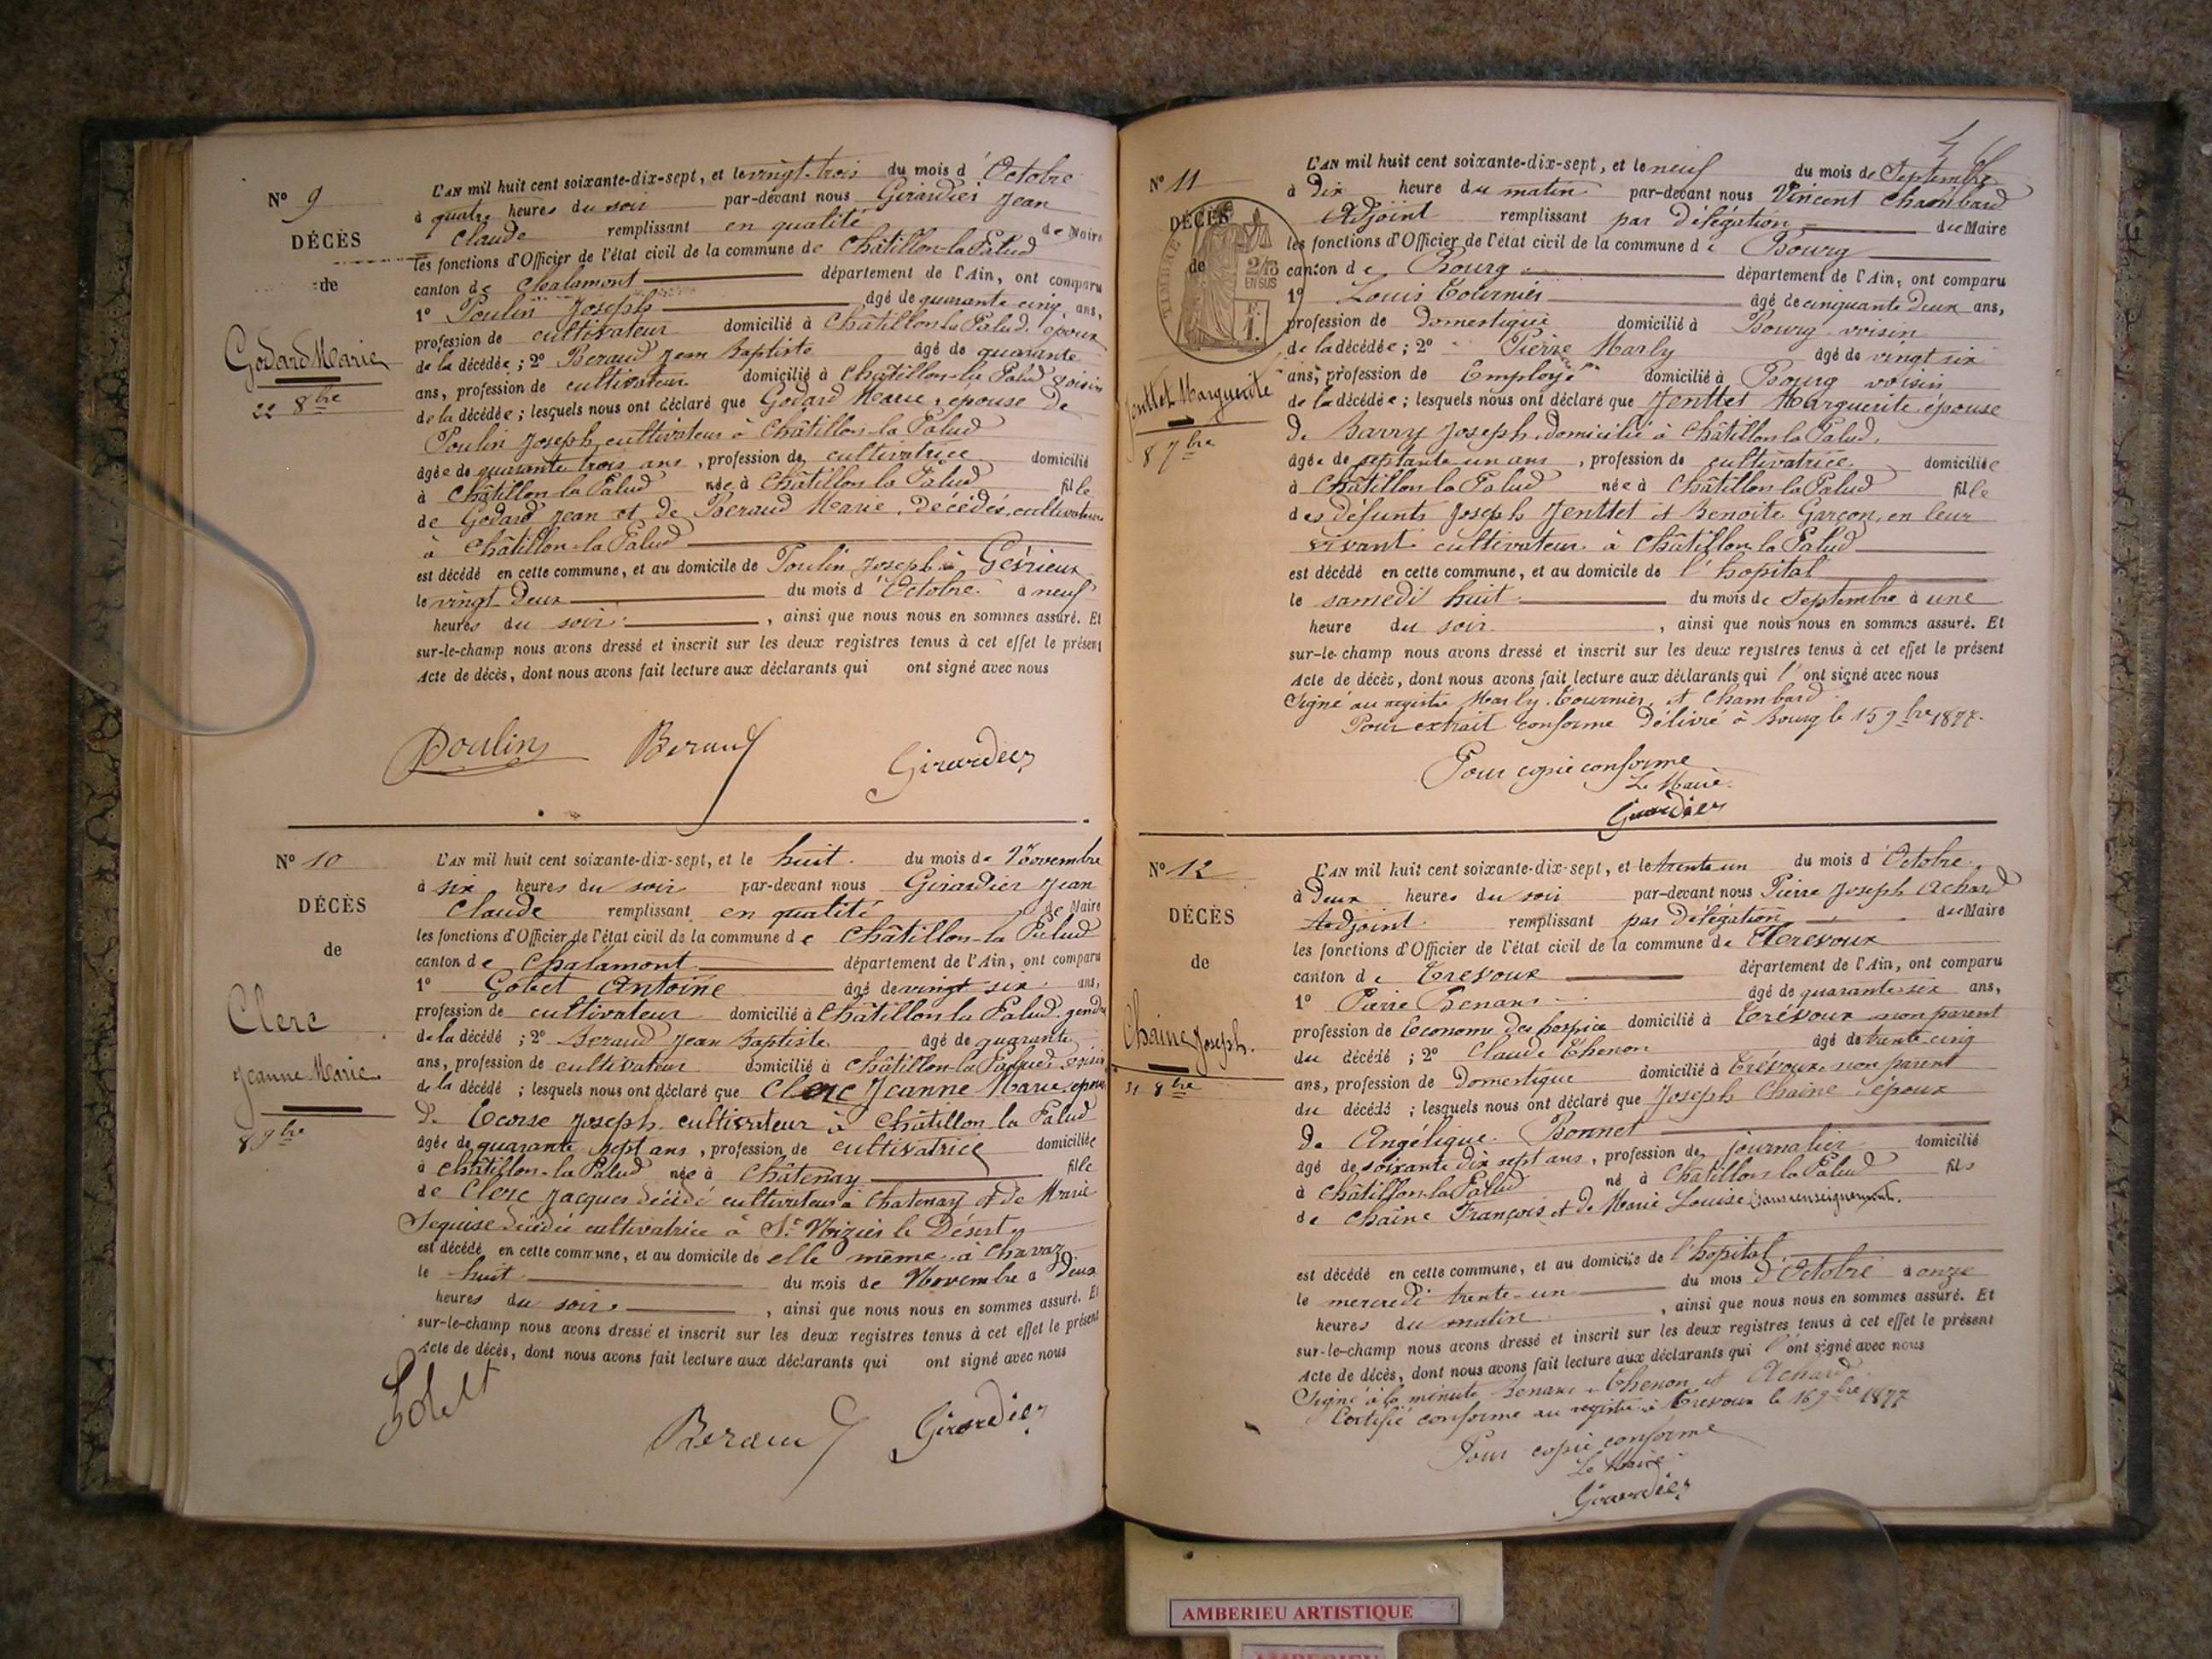 N° 9
DÉCÈS
de
Godard Marie
22 8bre
L'AN mil huit cent soixante-dix-sept, et le vingt-trois du mois d'Octobre
à quatre heures du soir par-devant nous Girardier Jean
Claude remplissant en qualité de Maire
les fonctions d'Officier de l'état civil de la commune de Châtillon-la-Palud
canton de Chalamont département de l'Ain, ont comparu
1° Poulin Joseph âgé de quarante cinq ans,
profession de cultivateur domicilié à Châtillon la Palud, époux
de la décédée ; 2° Beraud Jean Baptiste âgé de quarante
ans, profession de cultivateur domicilié à Châtillon-la Palud voisin
de la décédée ; lesquels nous ont déclaré que Godard Marie, épouse de
Poulin Joseph cultivateur à Châtillon-la Palud
âgée de quarante trois ans, profession de cultivatrice domicilié
à Châtillon la Palud née à Châtillon la Palud fille
de Godard Jean et de Beraud Marie, décédés, cultivateurs
à Châtillon-la Palud
est décédé en cette commune, et au domicile de Poulin Joseph à Gévrieux
le vingt-deux du mois d'Octobre à neuf
heures du soir, ainsi que nous nous en sommes assuré. Et
sur-le-champ nous avons dressé et inscrit sur les deux registres tenus à cet effet le présent
Acte de décès, dont nous avons fait lecture aux déclarants qui ont signé avec nous
Poulin Beraud Girardier
N° 10
DÉCÈS
de
Clerc
Jeanne Marie
8 9bre
L'AN mil huit cent soixante-dix-sept, et le huit du mois de Novembre
à six heures du soir par-devant nous Girardier Jean
Claude remplissant en qualité de Maire
les fonctions d'Officier de l'état civil de la commune de Châtillon-la Palud
canton de Chalamont département de l'Ain, ont comparu
1° Gobet Antoine âgé de vingt six ans,
profession de cultivateur domicilié à Châtillon la Palud, gendre
de la décédé ; 2° Beraud Jean Baptiste âgé de quarante
ans, profession de cultivateur domicilié à Châtillon-la Palud voisin
de la décédé ; lesquels nous ont déclaré que Clerc Jeanne Marie épouse
De Ecorse Joseph cultivateur à Châtillon la Palud
âgée de quarante sept ans, profession de cultivatrice domiciliée
à Châtillon-la Palud née à Châtenay fille
de Clerc Jacques décédé cultivateur à Chatenay et de Marie
décédée cultivatrice à St Nizier le Désert
est décédé en cette commune, et au domicile de elle même à Chavaz
le huit du mois de Novembre à deux
heures du soir, ainsi que nous nous en sommes assuré. Et
sur-le-champ nous avons dressé et inscrit sur les deux registres tenus à cet effet le présent
Acte de décès, dont nous avons fait lecture aux déclarants qui ont signé avec nous
Gobet
Beraud Girardier
N° 11
DÉCÈS
de
TIMBRE
2/10
EN SUS
F.
1.
Jenttet Marguerite
8 7bre
L'AN mil huit cent soixante-dix-sept, et le neuf du mois de Septembre
à dix heure du matin par-devant nous Vincent Chambard
Adjoint remplissant par délégation du Maire
les fonctions d'Officier de l'état civil de la commune de Bourg
canton de Bourg département de l'Ain, ont comparu
1° Louis Tournier âgé de cinquante deux ans,
profession de Domestique domicilié à Bourg voisin
de la décédée ; 2° Pierre Marly âgé de vingt six
ans, profession de Employé domicilié à Bourg voisin
de la décédée ; lesquels nous ont déclaré que Jenttet Marguerite épouse
De Barry Joseph, domicilié à Châtillon la Palud,
âgée de septante un ans, profession de cultivatrice domiciliée
à Châtillon la Palud née à Châtillon la Palud fille
des défunts Joseph Jenttet et Benoîte Garçon, en leur
vivant cultivateur à Châtillon la Palud
est décédé en cette commune, et au domicile de l'hopital
le samedi huit du mois de Septembre à une
heure du soir, ainsi que nous nous en sommes assuré. Et
sur-le-champ nous avons dressé et inscrit sur les deux registres tenus à cet effet le présent
Acte de décès, dont nous avons fait lecture aux déclarants qui l'ont signé avec nous
Signé au registre Marly, Tournier, et Chambard
Pour extrait conforme Délivré à Bourg le 15 9bre 1877.
Pour copie conforme
Le Maire
Girardier
N° 12
DÉCÈS
de
Chaine Joseph.
31 8bre
L'AN mil huit cent soixante-dix-sept, et le trente un du mois d'Octobre
à Deux heures du soir par-devant nous Pierre Joseph Achard
Adjoint remplissant par délégation du Maire
les fonctions d'Officier de l'état civil de la commune de Trevoux
canton de Trevoux département de l'Ain, ont comparu
1° Pierre Benans âgé de quarante-six ans,
profession de Econome des hospice domicilié à Trévoux non parent
du décédé ; 2° Claude Thenon âgé de trente cinq
ans, profession de Domestique domicilié à Trévoux non parent
du décédé ; lesquels nous ont déclaré que Joseph Chaine, époux
De Angélique Bonnet
âgé de soixante dix sept ans, profession de journalier domicilié
à Châtillon-la Palud né à Châtillon la Palud fils
de Chaîne François et de Marie Louise sans renseignement.
est décédé en cette commune, et au domicile de l'hopital
le mercredi trente-un du mois d'Octobre à onze
heures du matin, ainsi que nous nous en sommes assuré. Et
sur-le-champ nous avons dressé et inscrit sur les deux registres tenus à cet effet le présent
Acte de décès, dont nous avons fait lecture aux déclarants qui l'ont signé avec nous
Signé à la minute Benans, Thenon et Achard
Certifié conforme au registre à Trevoux le 16 9bre 1877
Pour copie conforme
Le Maire
Girardier
AMBERIEU ARTISTIQUE
AMBERIEU